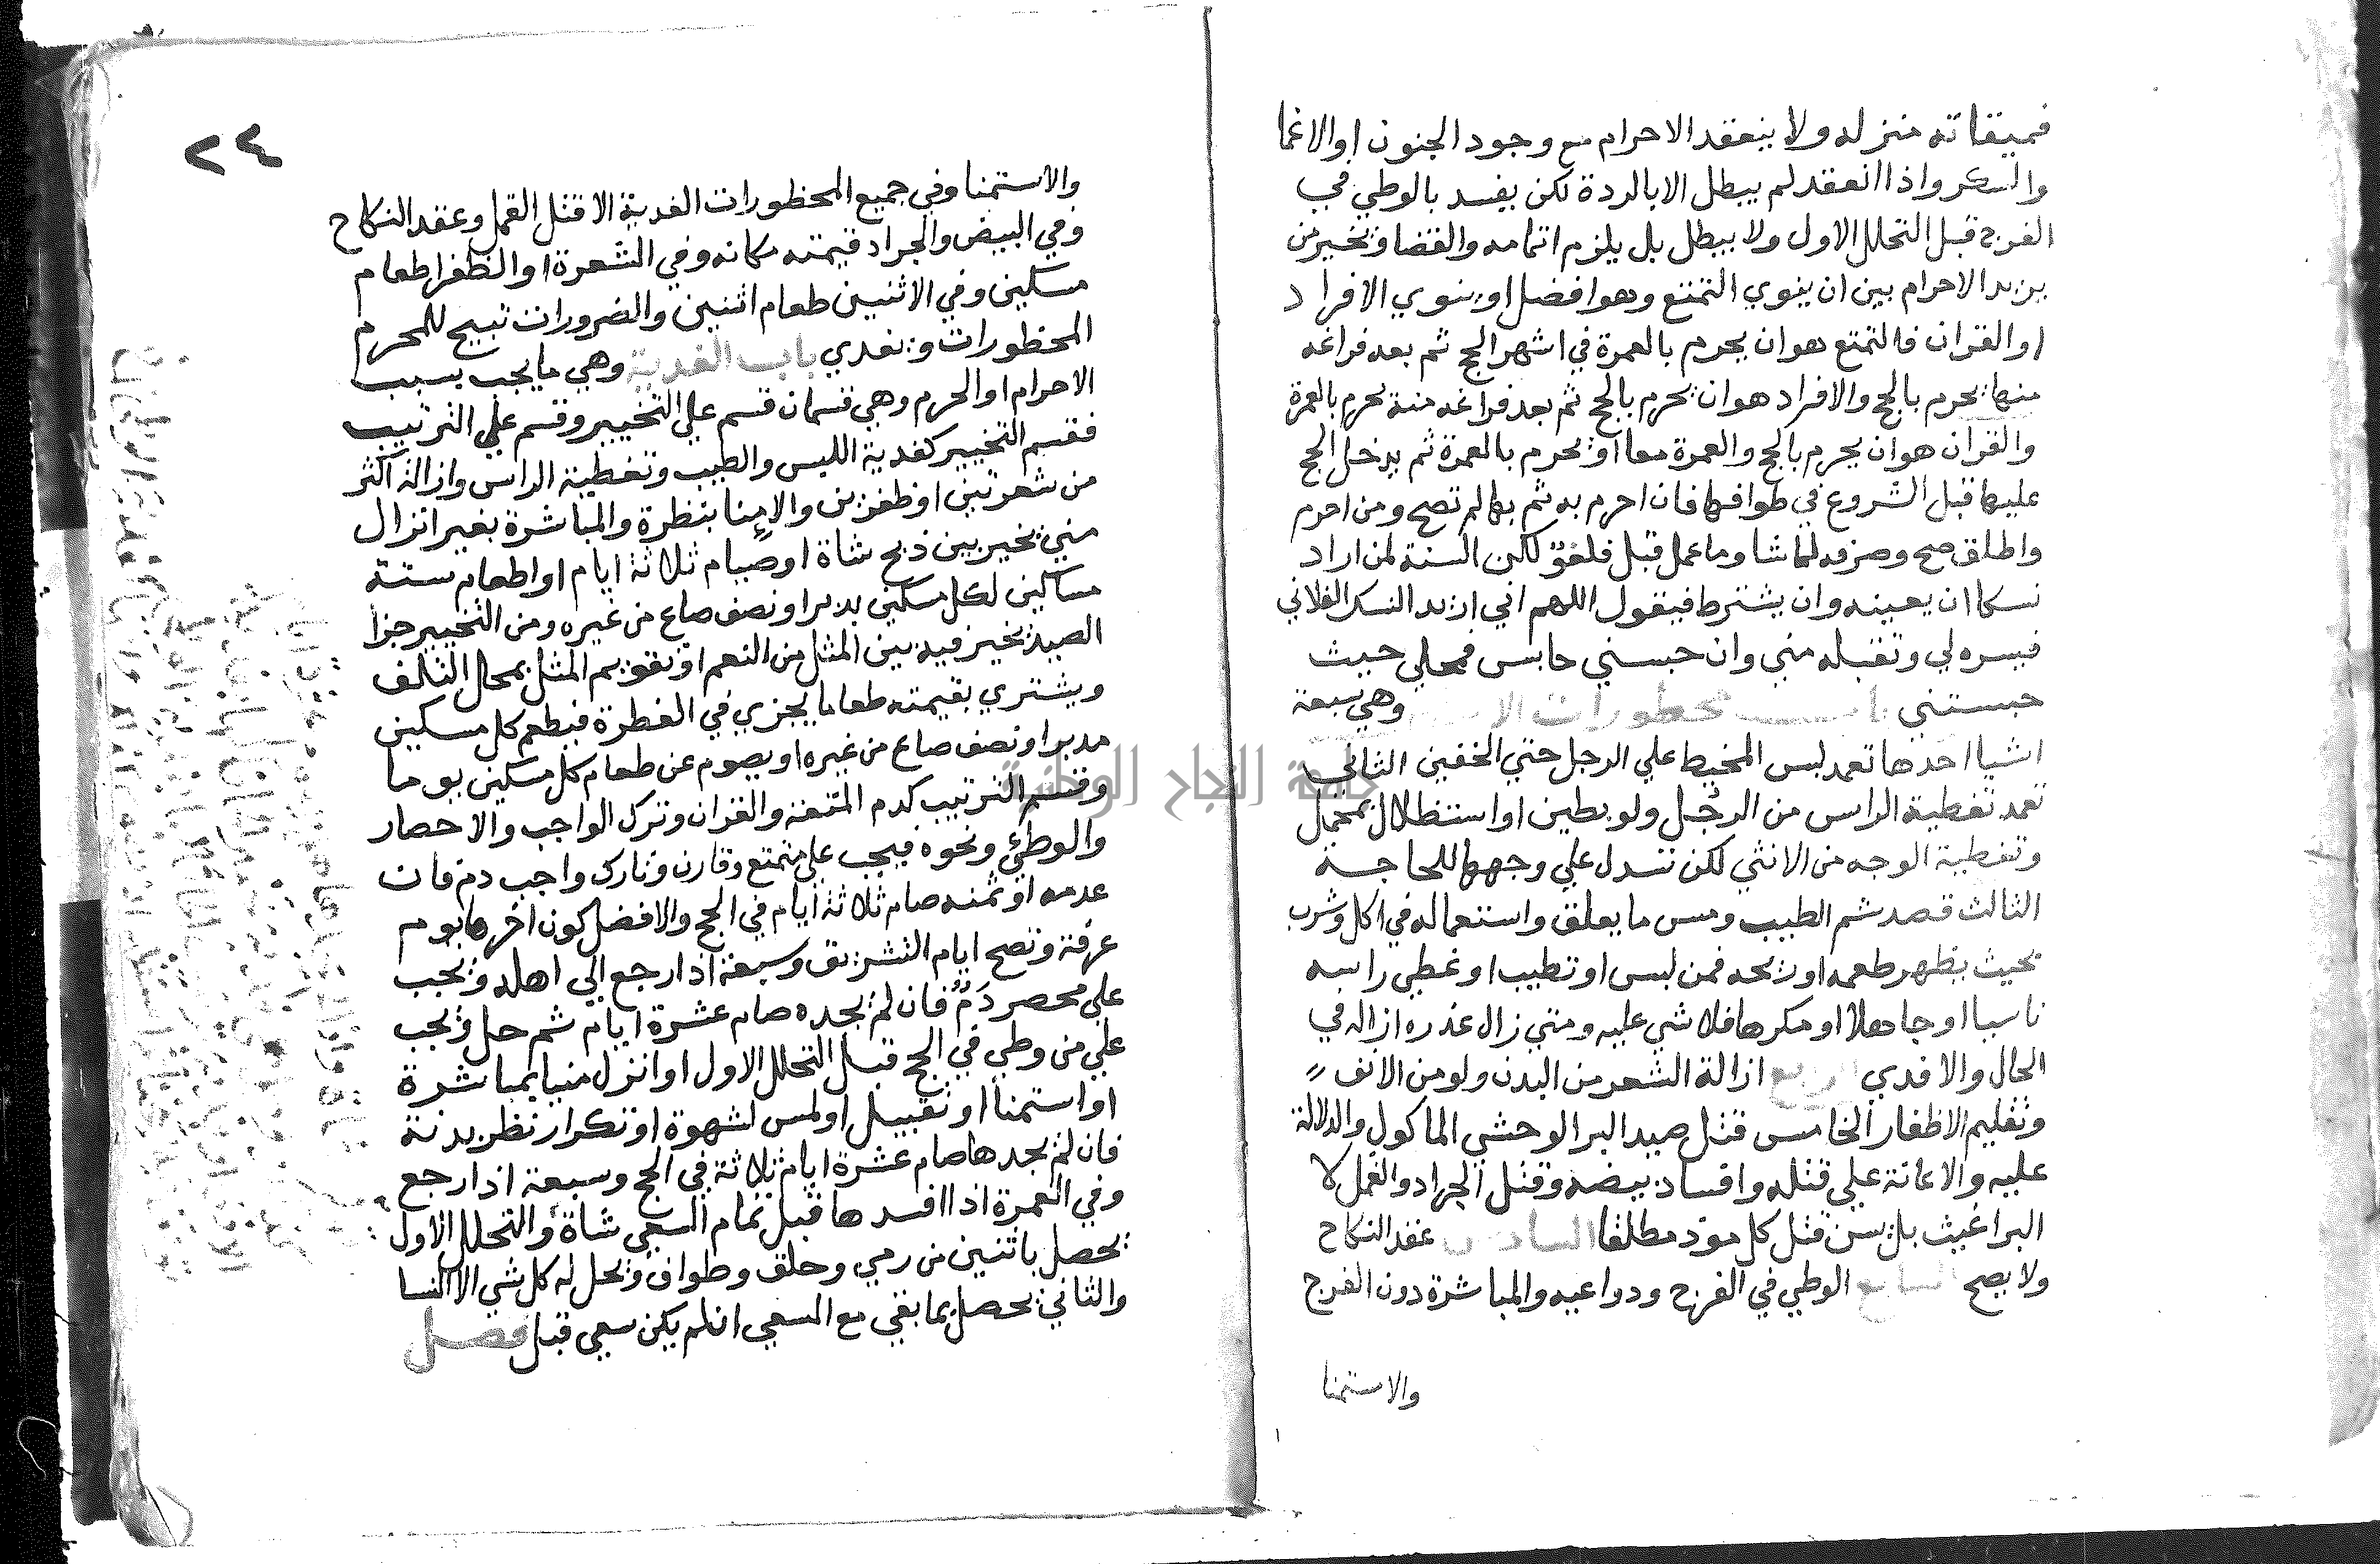 فميقاته منزله ولا ينعقد الاحرام مع وجود الجنون او الاغما
والسكر واذا انعقد لم يبطل الا بالردة لكن يفسد بالوطي في
الفرج قبل التحلل الاول ولا يبطل بل يلزم اتمامه والقضا ويخير من
يريد الاحرام بين ان ينوي التمتع وهو افضل او ينوي الافراد
او القران فالتمتع هو ان يحرم بالعمرة في اشهر الحج ثم بعد فراغه
منها يحرم بالحج والافراد هو ان يحرم بالحج ثم بعد فراغه منه يحرم بالعمرة
والقران هو ان يحرم بالحج والعمرة معا او يحرم بالعمرة ثم يدخل الحج
عليها قبل الشروع في طوافها فان احرم به ثم بها لم تصح ومن احرم
واطلق صح وصرفه لما شا وما عمل قبل فلغو لكن السنة لمن اراد
نسكا ان يعينه وان يشترط فيقول اللهم اني اريد النسك الفلاني
فيسره لي وتقبله مني وان حبسني حابس فمحلي حيث
حبستني باب محظورات الاحرام وهي سبعة
اشيا احدها تعمد لبس المخيط علي الرجل حتي الخفين الثاني
تعمد تغطية الراس من الرجل ولو بطين او استظلال بمحمل
وتغطية الوجه من الانثي لكن تسدل علي وجهها للحاجة
الثالث قصد شم الطيب ومس ما يعلق واستعماله في اكل وشرب
بحيث يظهر طعمه او ريحه فمن لبس او تطيب او غطي راسه
ناسيا او جاهلا او مكرها فلا شي عليه ومتي زال عذره ازاله في
الحال والا فدي الرابع ازالة الشعر من البدن ولو من الانف
وتقليم الاظفار الخامس قتل صيد البر الوحشي الماكول والدلالة
عليه والاعانة علي قتله وافساد بيضه وقتل الجراد والقمل لا
البراغيث بل يسن قتل كل موذ مطلقا السادس عقد النكاح
ولا يصح السابع الوطي في الفرج ودواعيه والمباشرة دون الفرج
والاستمنا
٢٤
والاستمنا وفي جميع المحظورات الفدية الا قتل القمل وعقد النكاح
وفي البيض والجراد قيمته مكانه وفي الشعرة او الظفر اطعام
مسكين وفي الاثنين طعام اثنين والضرورات تبيح للمحرم
المحظورات ويفدي باب الفدية وهي ما يجب بسبب
الاحرام او الحرم وهي قسمان قسم علي التخيير وقسم علي الترتيب
فقسم التخيير كفدية اللبس والطيب وتغطية الراس وازالة اكثر
من شعرتين او ظفرين والامنا بنظرة والمباشرة بغير انزال
مني يخير بين ذبح شاة او صيام ثلاثة ايام او اطعام ستة
مساكين لكل مسكين مد بر او نصف صاع من غيره ومن التخيير جزا
الصيد يخير فيه بين المثل من النعم او تقويم المثل بمحل التلف
ويشتري بقيمته طعاما يجزي في الفطرة فيطعم كل مسكين
مد بر او نصف صاع من غيره او يصوم عن طعام كل مسكين يوما
وقسم الترتيب كدم المتعة والقران وترك الواجب والاحصار
والوطئ ونحوه فيجب علي متمتع وقارن وتارك واجب دم فان
عدمه او ثمنه صام ثلاثة ايام في الحج والافضل كون اخرها يوم
عرفة وتصح ايام التشريق وسبعة اذا رجع الي اهله ويجب
علي محصر دم فان لم يجده صام عشرة ايام ثم حل ويجب
علي من وطي في الحج قبل التحلل الاول او انزل منيا بمباشرة
او استمنا او تقبيل او لمس لشهوة او تكرار نظر بدنة
فان لم يجدها صام عشرة ايام ثلاثة في الحج وسبعة اذا رجع
وفي العمرة اذا افسدها قبل تمام السعي شاة والتحلل الاول
يحصل باثنين من رمي وحلق وطواف ويحل له كل شي الا النسا
والثاني يحصل بما بقي مع السعي ان لم يكن سعي قبل فصل
جامعة النجاح الوطنية